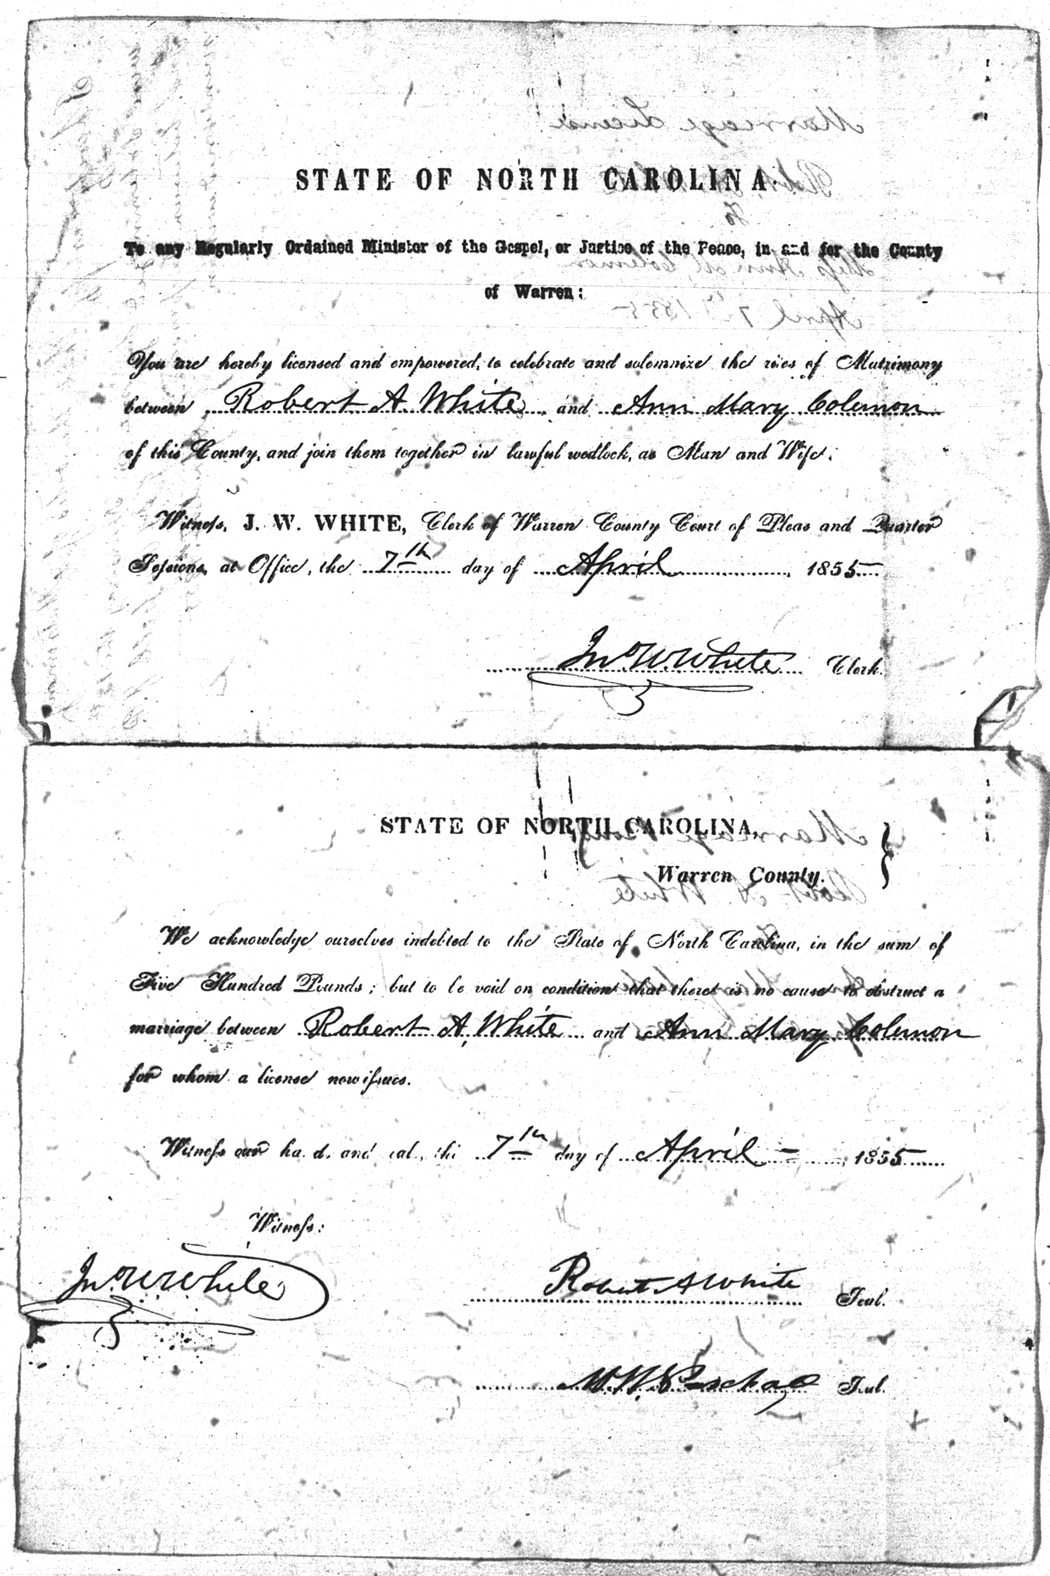 Marriage License
STATE OF NORTH CAROLINA.
To
To any Regularly Ordained Minister of the Gospel, or Justice of the Peace, in and for the County
Miss Ann M Colemon
of Warren:
April 7th 1855
You are hereby licensed and empowered, to celebrate and solemnize the rites of Matrimony
between Robert A White and Ann Mary Colemon
of this County, and join them together in lawful wedlock, as Man and Wife.
Witness, J. W. WHITE, Clerk of Warren County Court of Pleas and Quarter
Sessions, at Office, the 7th day of April 1855
Jno W White Clerk.
STATE OF NORTH CAROLINA,
Marriage
Warren County.
Robt A White
We acknowledge ourselves indebted to the State of North Carolina, in the sum of
Five Hundred Pounds; but to be void on condition that there is no cause to obstruct a
marriage between Robert A. White and Ann Mary Colemon
for whom a license now issues.
Witness our hands and seals, this 7th day of April 1855
Witness:
Jno W White
Robert A White Seal.
Seal.